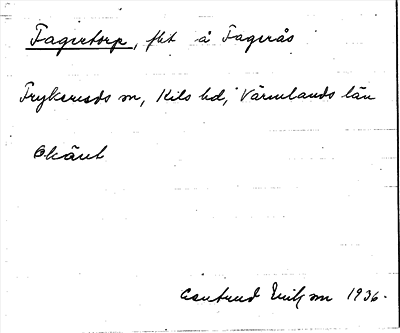 Fagertorp, fht å Fagerås
Frykeruds sn, Kils hd, Värmlands län
Okänt
1936.